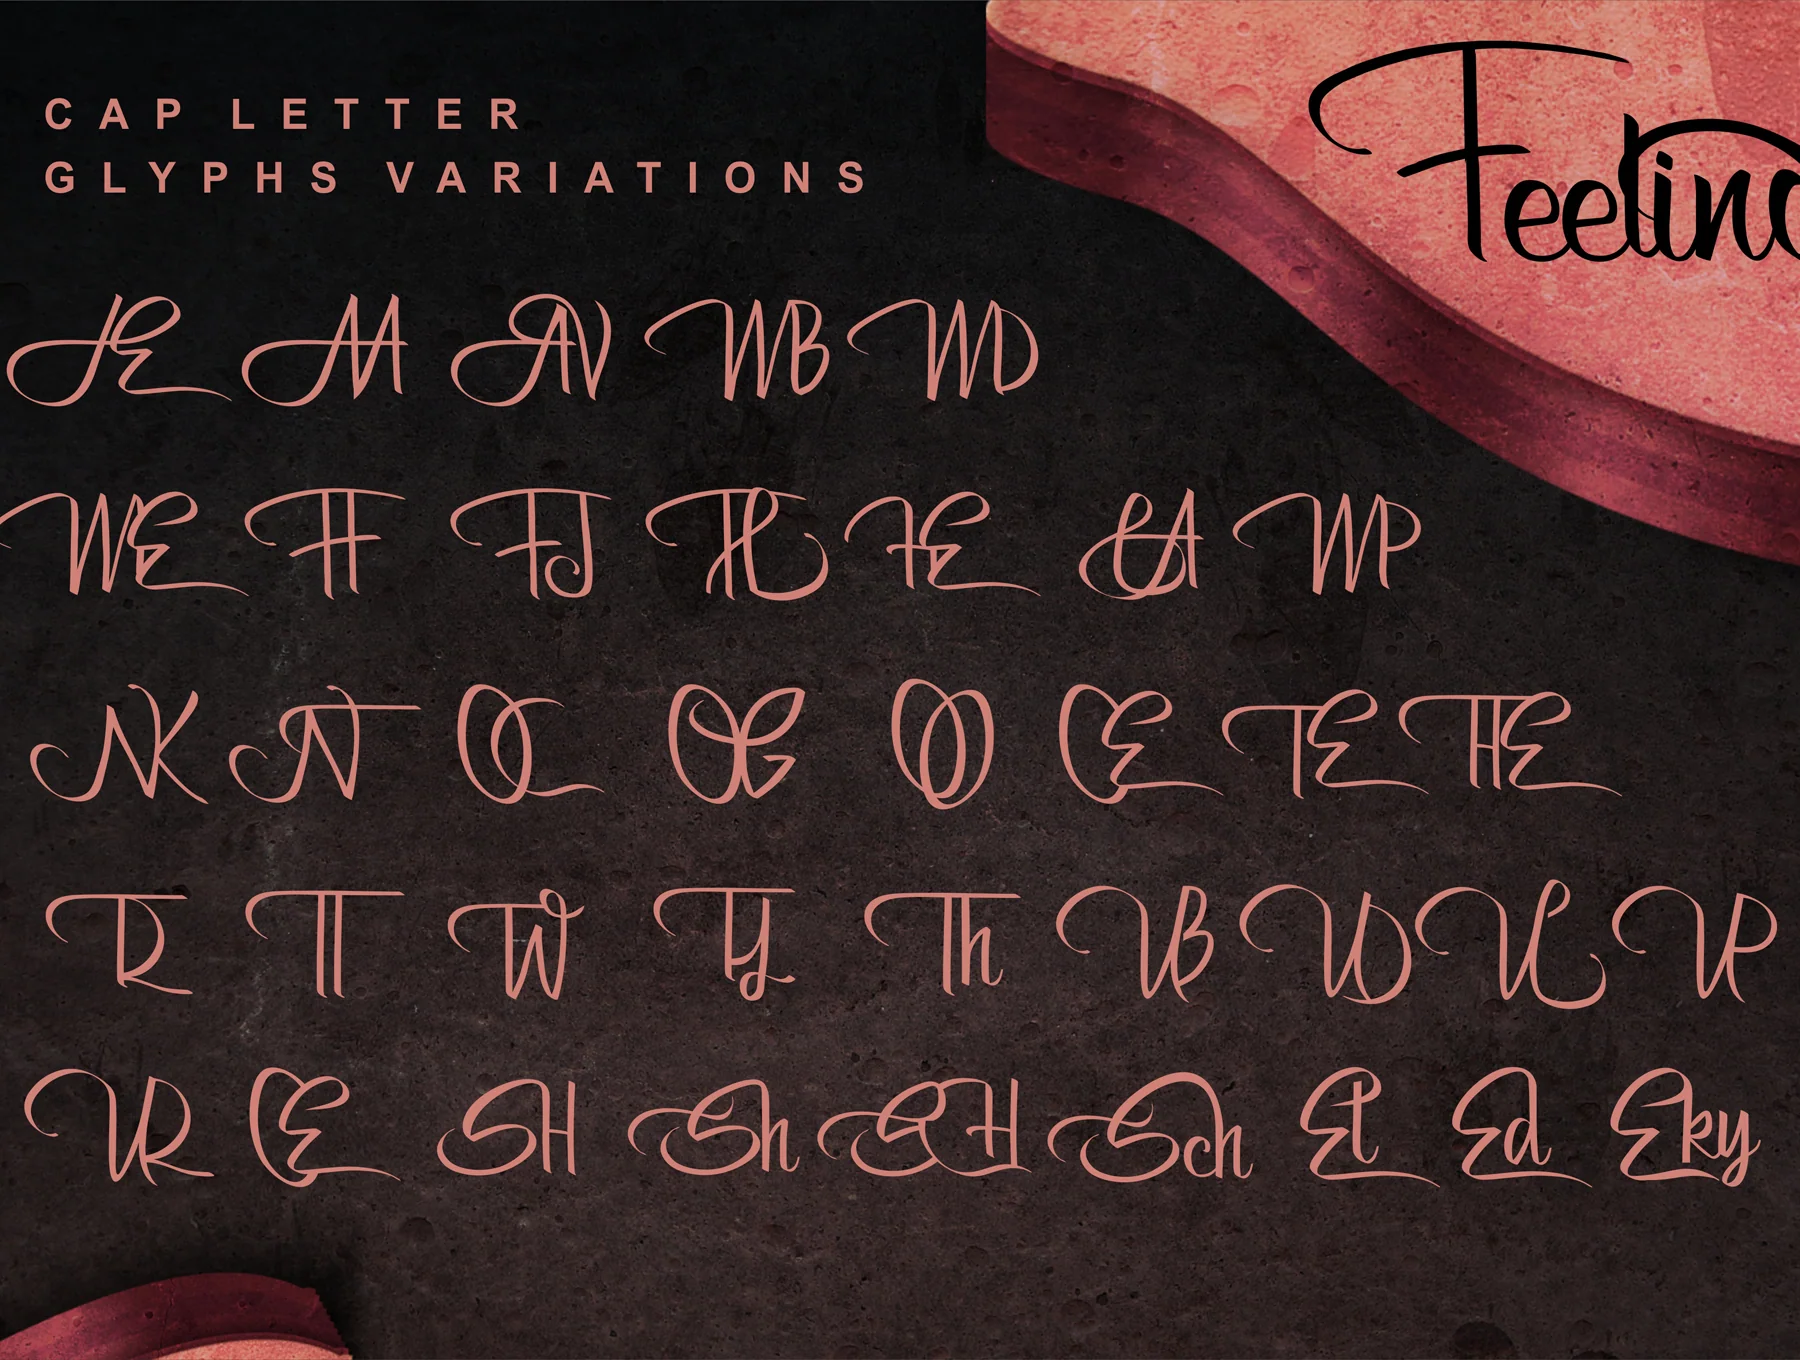 CAP LETTER
GLYPHS VARIATIONS
Feelin
AE AA AV WB WD
WE FF FJ HE LA WP
NK NT OC OG OO OE TE THE
TR TT TW Ty Th UB UD UL UP
UR CE SH Sh SCH Sch Et Ed Eky